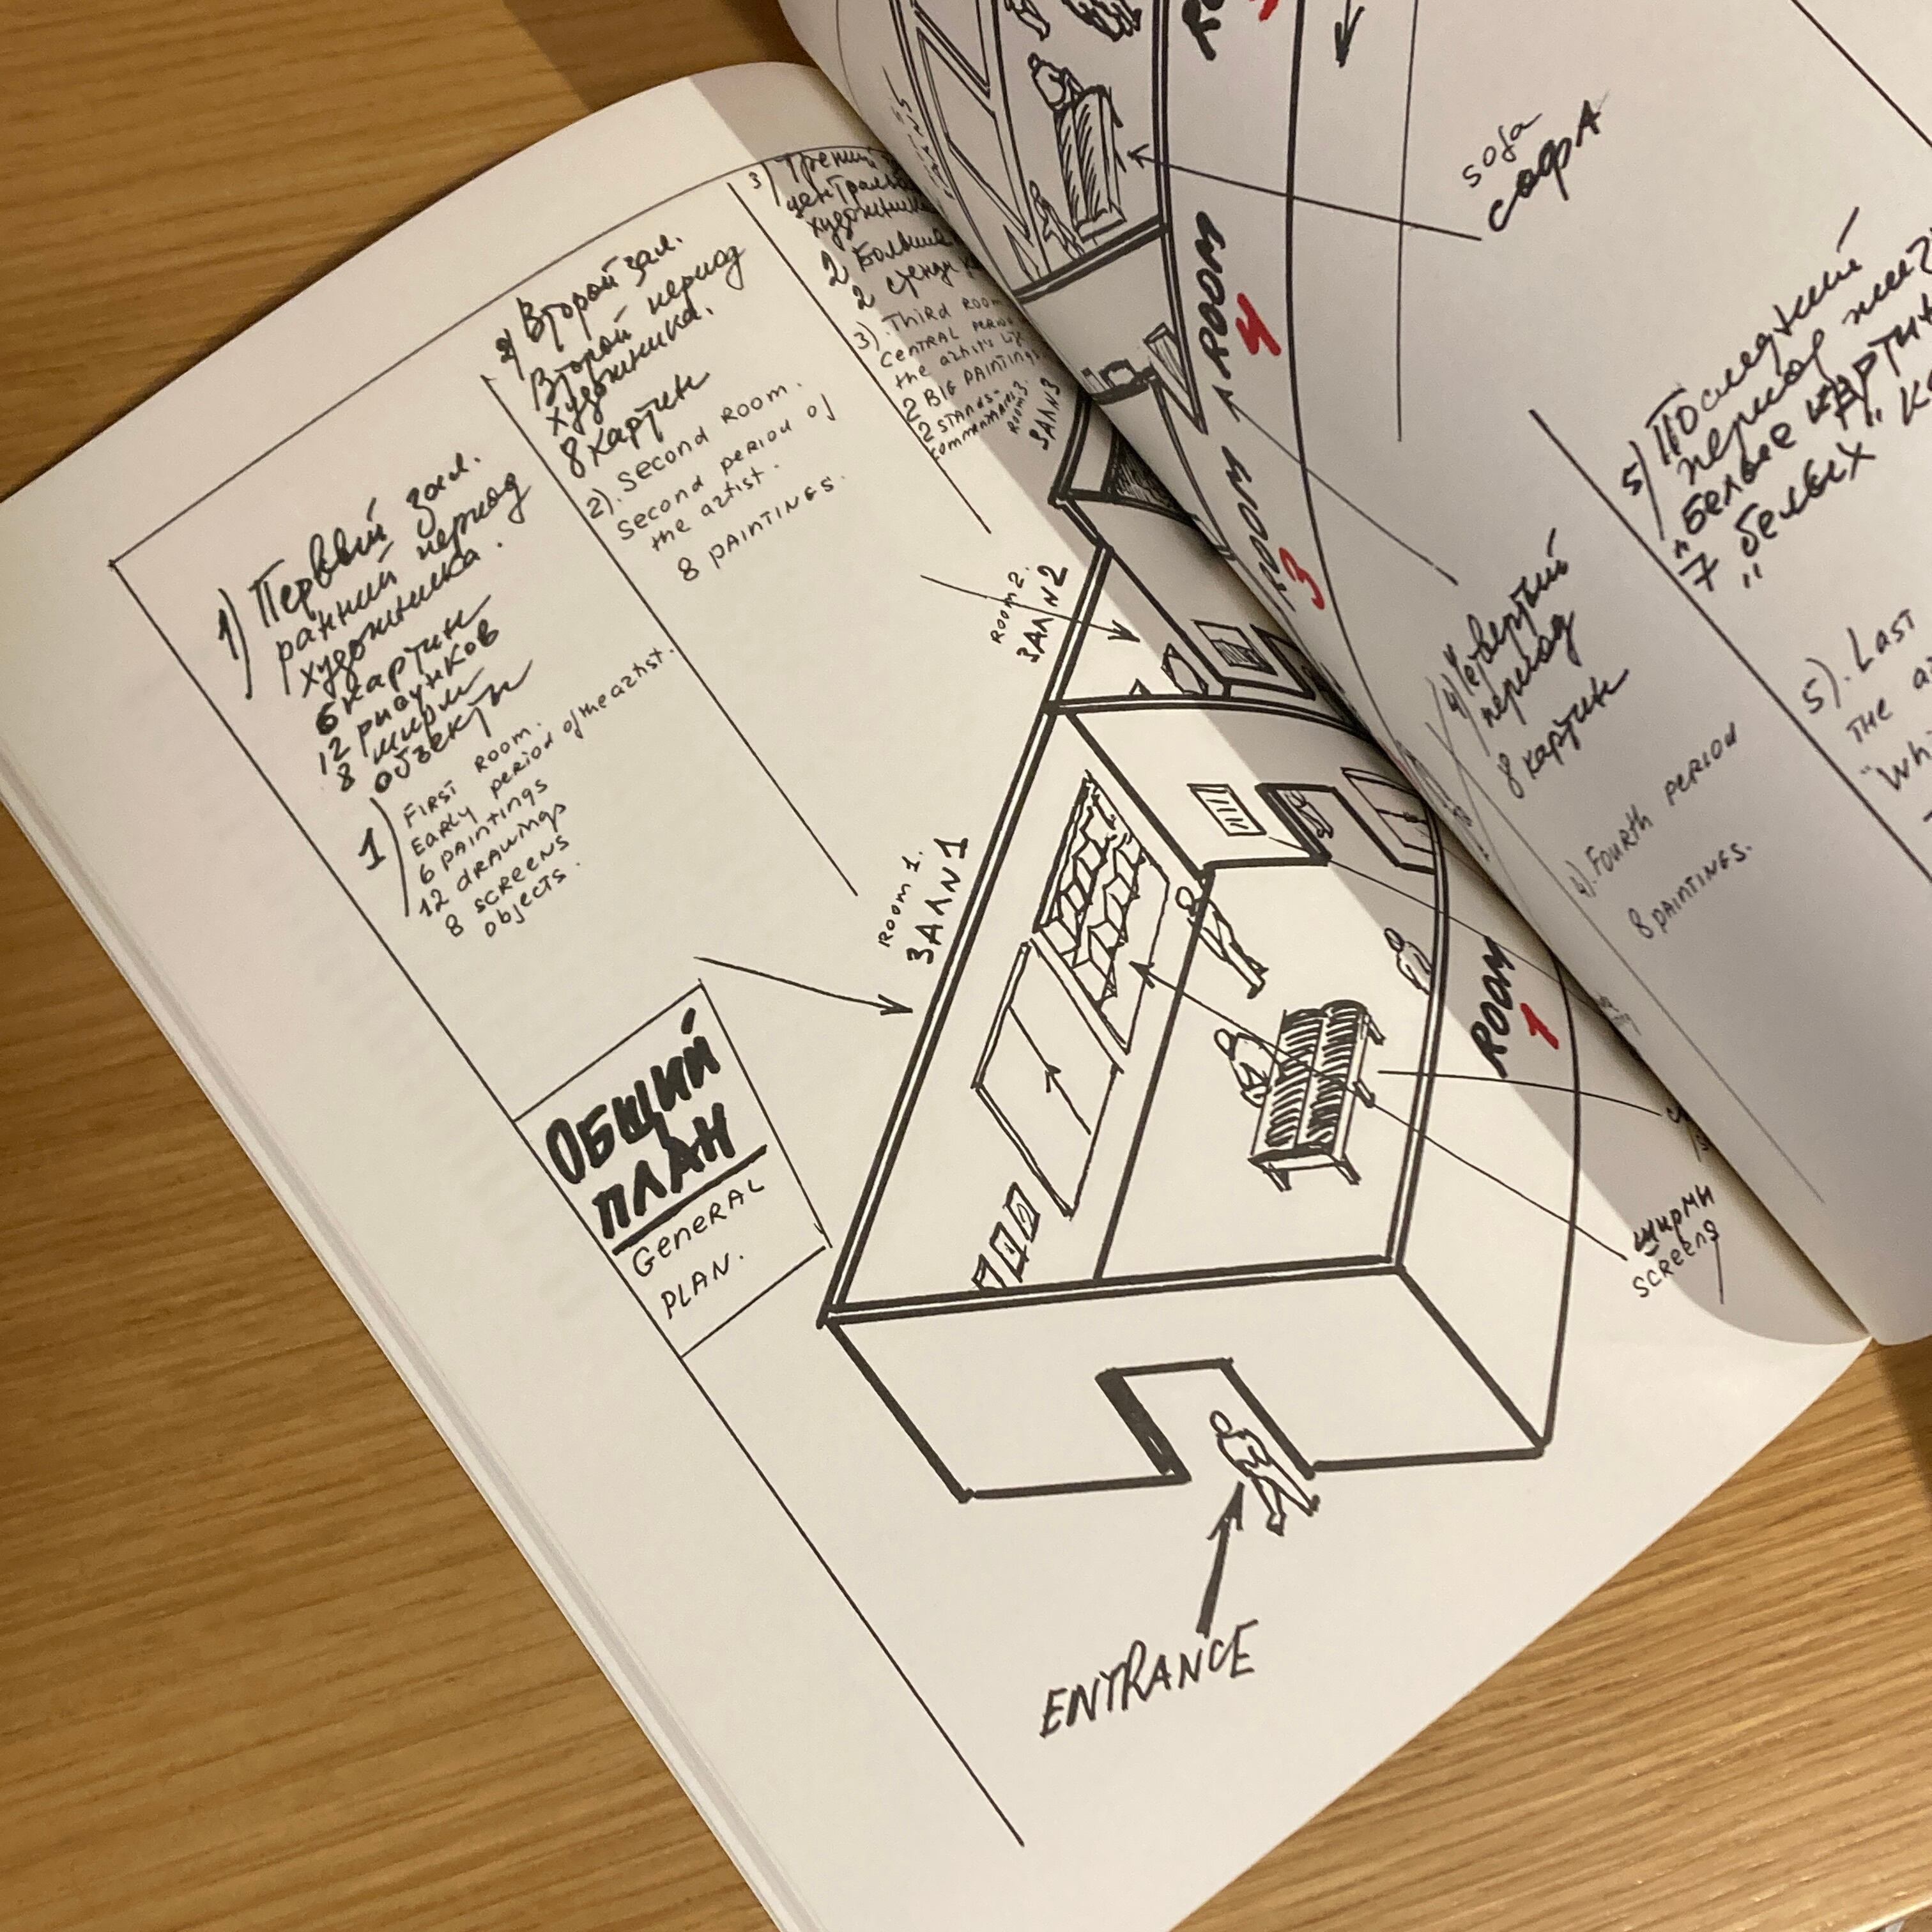 1) Первый зал.
ранний период
художника.
6 картин
12 рисунков
8 ширм
объекты
1) First room.
Early period of the artist.
6 paintings
12 drawings
8 screens
objects.
2) Второй зал.
Второй период
художника.
8 картин
2). Second room.
Second period of
the artist.
8 paintings.
3)
художника
2
2
3). Third room
Central period
the artist's
2 BIG PAINTINGS
2 stands-
commentaries
Room 3.
ЗАЛ N3
Room 2.
ЗАЛ N2
Room 1.
ЗАЛ N1
ОБЩИЙ
ПЛАН
General
PLAN.
ENTRANCE
ROOM
1
ширмы
screens
ROOM
3
ROOM
4
sofa
софа
4) Четвертый
период
8 картин
4). Fourth period
8 paintings.
5) Последний
период
"Белые
7 "белых"
5). Last
the